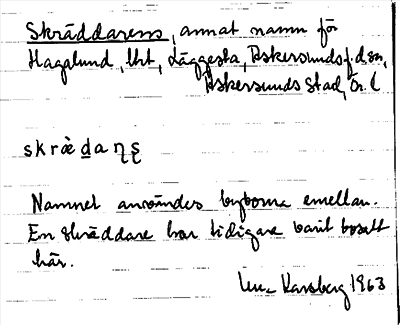 Skräddarens, annat namn för
Hagalund, lht, Läggesta, Askersunds f.d. sn,
Askersunds stad, Ör. l
skrä̀daɳʂ
Namnet användes byborna emellan.
En skräddare har tidigare varit bosatt
här.
Karsberg 1963